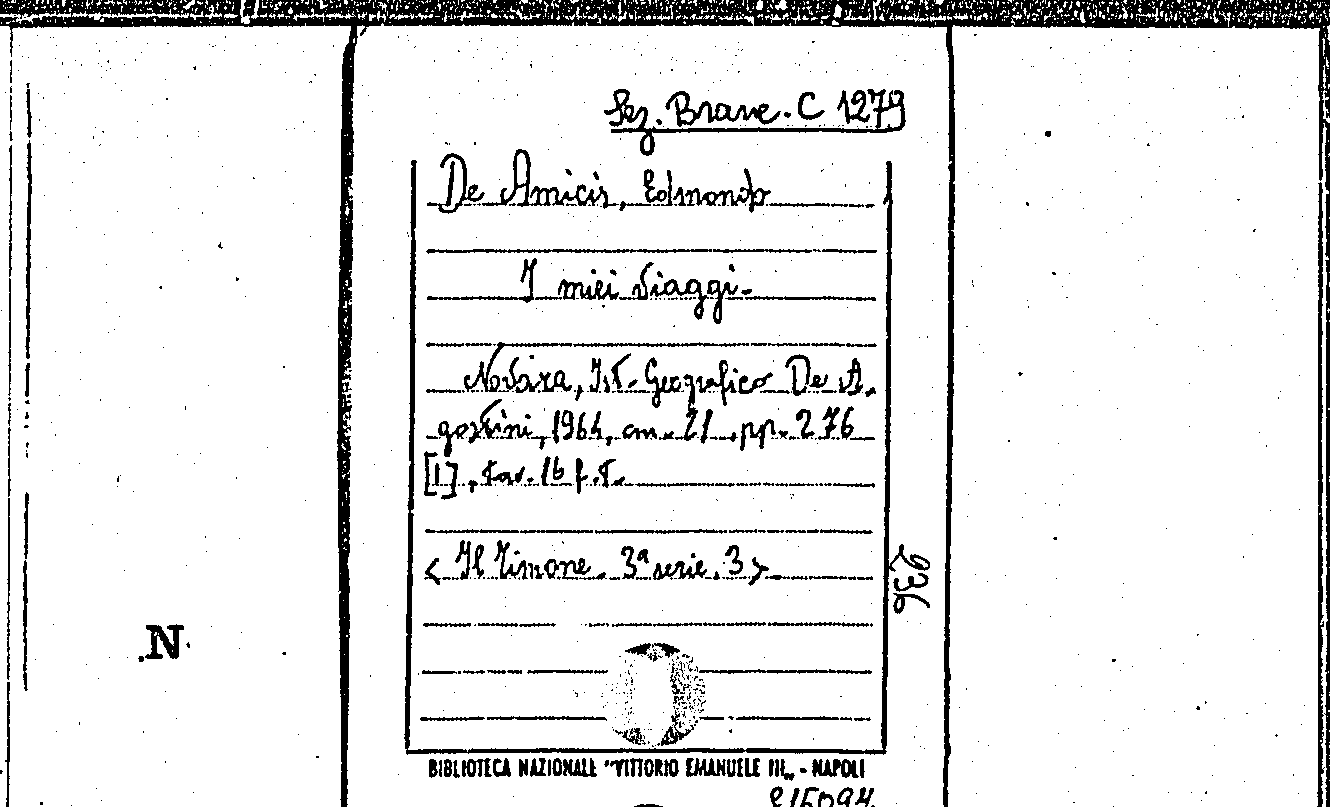 Sez. Branc. C 1279
De Amicis, Edmondo
I miei viaggi.
Novara, Ist. Geografico De A.
gostini, 1964, cm. 21, pp. 276
[1], tav. 16 f. t.
< Il Timone. 3ª serie. 3 >
236
N
BIBLIOTECA NAZIONALE "VITTORIO EMANUELE III„ - NAPOLI